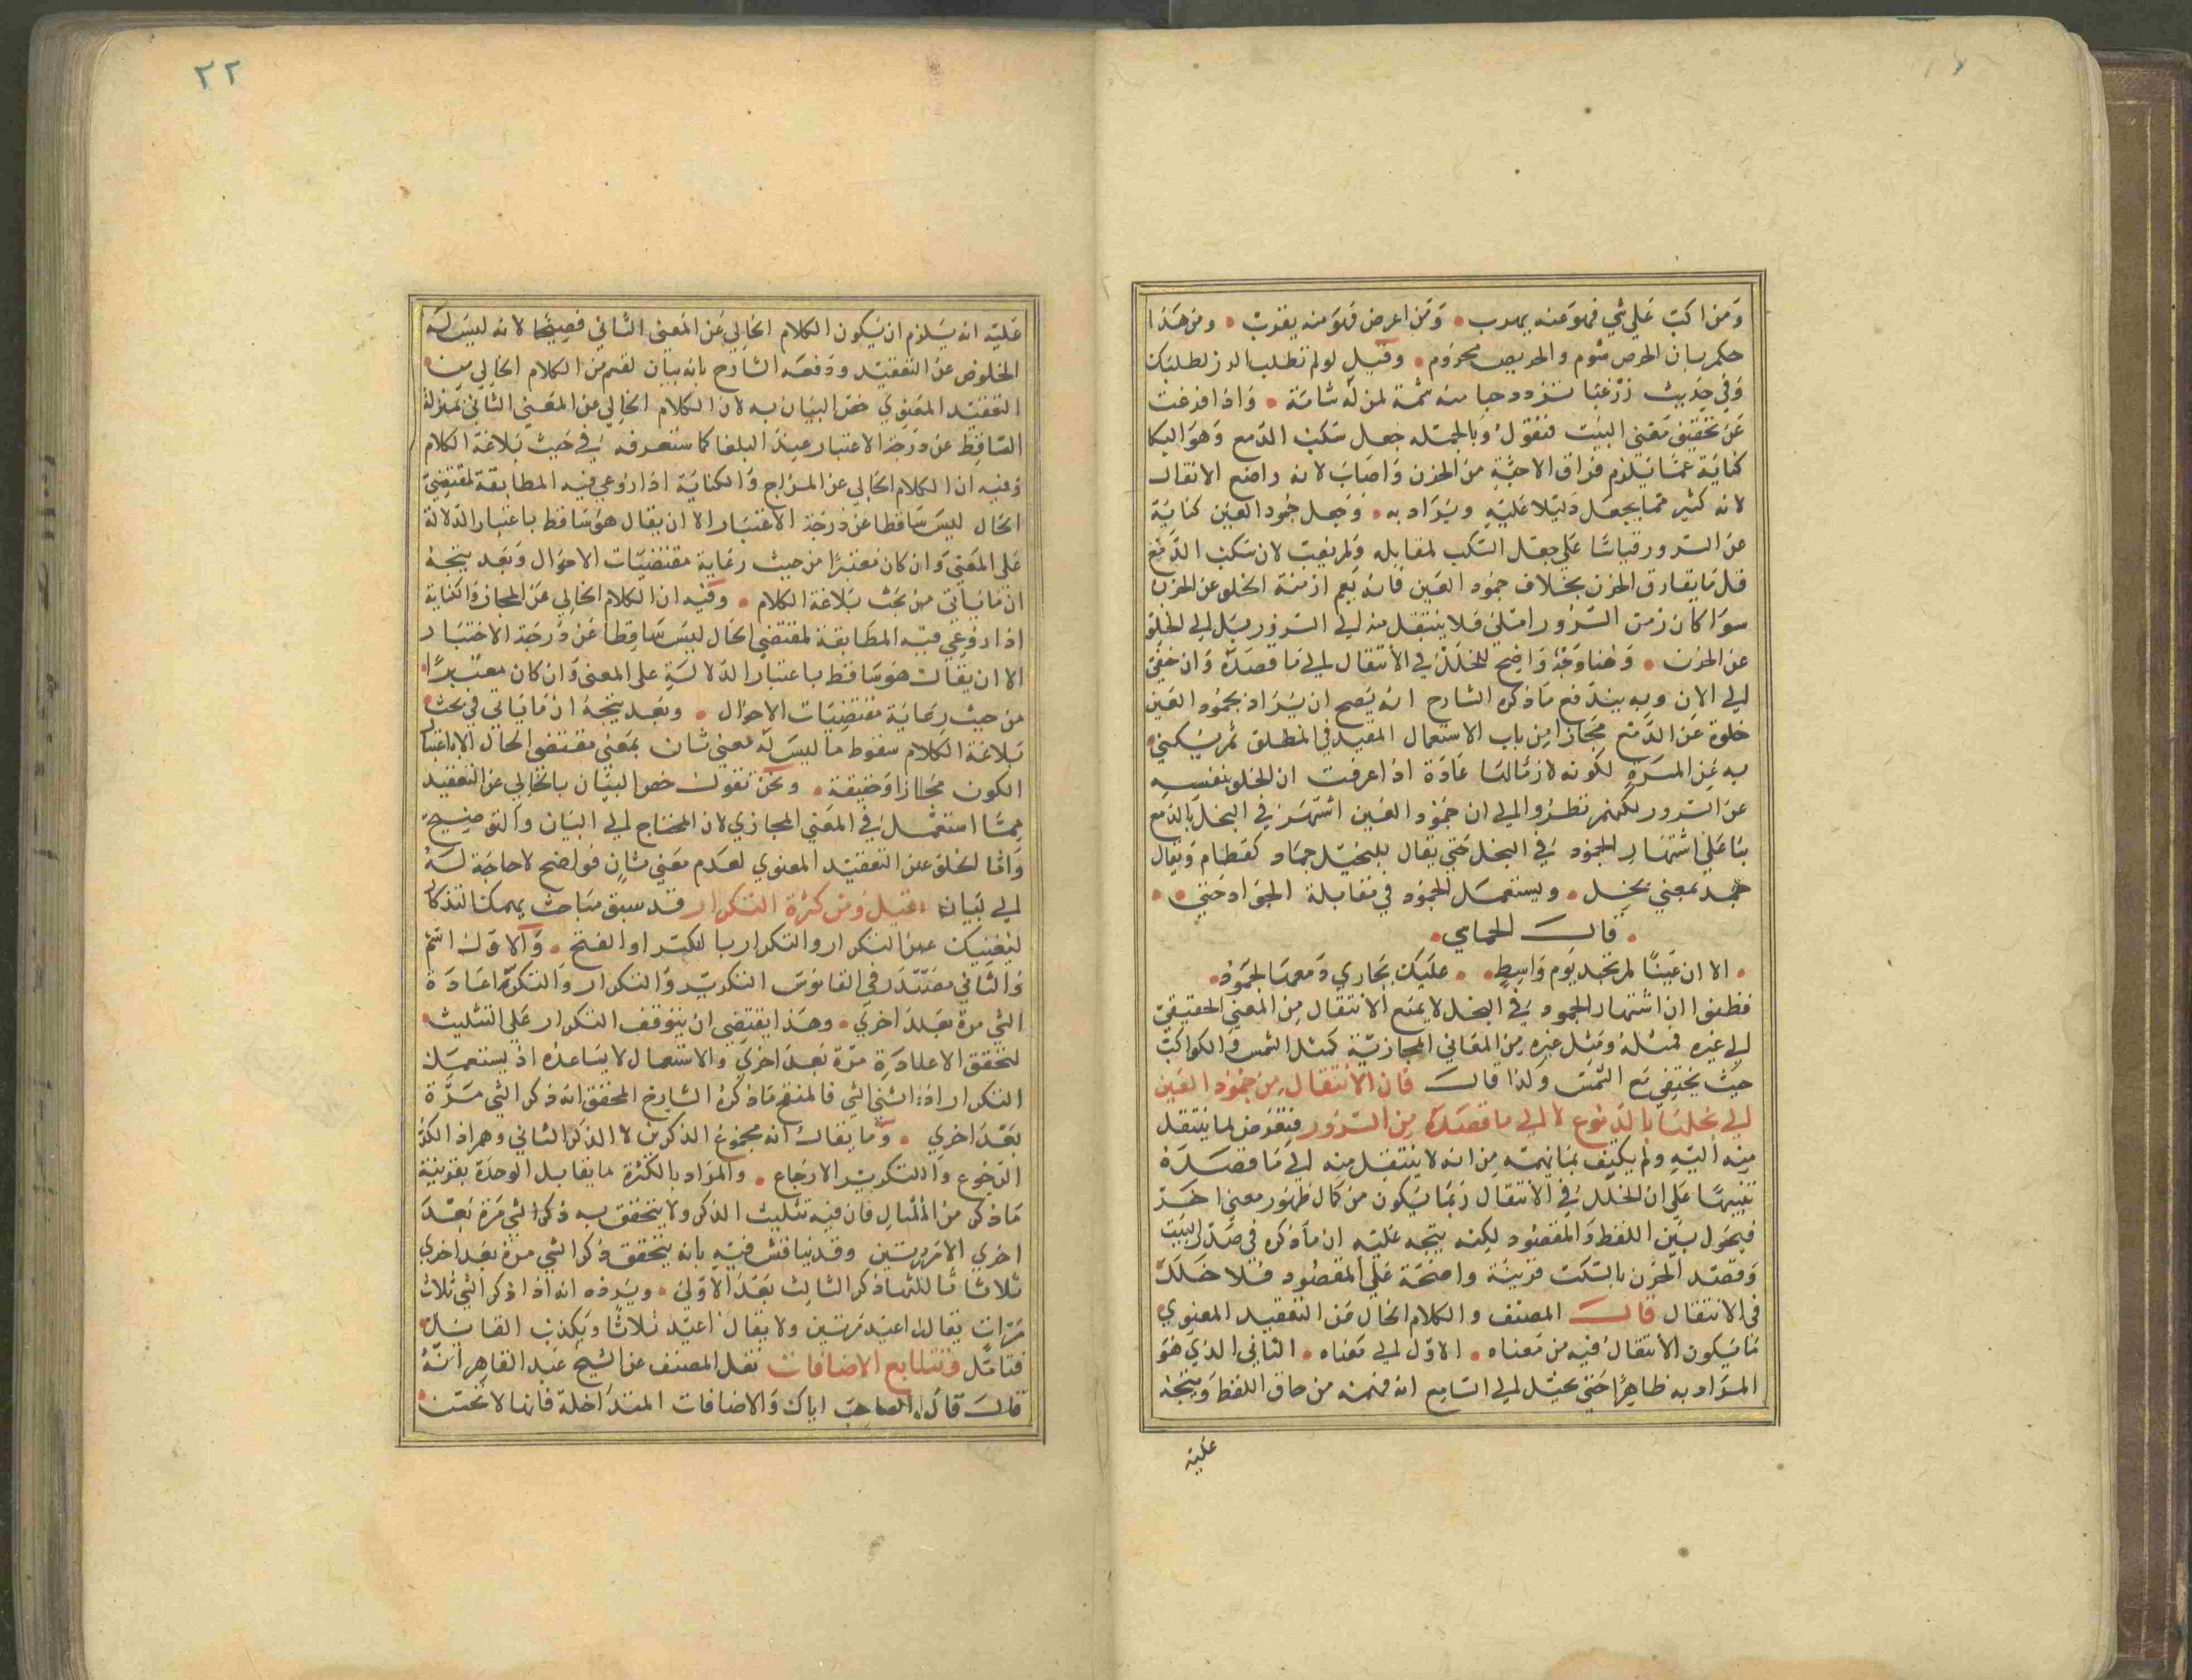 ومن اكب علي شي فهو عنه يهرب • ومن اعرض فهو منه يقرب • ومن هذا
حكم بان الحرص شوم والحريص محروم • وقيل لو لم تطلب الرزق لطلبك
وفي حديث زر غبا تزدد حبا منه شمة لمن له شامة • واذا فرغت
عن تحقيق معني البيت فنقول وبالجملة جعل سكب الدمع وهو البكا
كناية عما يلزم فراق الاحبة من الحزن واصاب لانه واضح الانتقال
لانه كثير مما يجعل دليلا عليه ويراد به • وجعل جمود العين كناية
عن السرور قياسا علي جعل السكب لمقابله ولم يصب لان سكب الدمع
قل ما يفارق الحزن بخلاف جمود العين فانه يعم ازمنة الخلو عن الحزن
سوا كان زمن السرور ام لا فلا ينتقل منه الي السرور بل الي الخلو
عن الحزن • وهنا وجه واضح للخلل في الانتقال الي ما قصده وان خفي
الي الان وبه يندفع ما ذكره الشارح انه يصح ان يراد بجمود العين
خلوه عن الدمع مجازا من باب الاستعمال المقيد في المطلق ثم يكني
به عن المسرة لكونه لازما لها عادة اذا عرفت ان الخلو بنفسه
عن السرور لكنهم نظروا الي ان جمود العين اشتهر في البخل بالدمع
بنا علي اشتهار الجمود في البخل حتي يقال للبخيل جماد كقطام ويقال
جمد بمعني بخل • ويستعمل الجمود في مقابلة الجواد حتي • •
• قال الحماسي •
• الا ان عينا لم تجد يوم واسط • • عليك بجاري دمعها لجمود •
فظنوا ان اشتهار الجمود في البخل لا يمنع الانتقال من المعني الحقيقي
الي غيره فمثله ومثل غيره من المعاني المجازية كمثل الشمس والكواكب
حيث يختفي مع الشمس ولذا قال فان الانتقال من جمود العين
الي بخلها بالدموع لا الي ما قصده من السرور فتعرض لما ينتقل
منه اليه ولم يكتف بما يهمه من انه لا ينتقل منه الي ما قصده
تنبيها علي ان الخلل في الانتقال ربما يكون من كمال ظهور معني اخر
فيحول بين اللفظ والمقصود لكنه يتجه عليه ان ما ذكره في صدر البيت
وقصد الحزن بالسكب قرينة واضحة علي المقصود فلا خلل
في الانتقال قال المصنف والكلام الخال من التعقيد المعنوي
ما يكون الانتقال فيه من معناه • الاول الي معناه • الثاني الذي هو
المراد به ظاهرا حتي يخيل الي السامع انه فهمه من حاق اللفظ ويتجه
عليه
٢٢
عليه انه يلزم ان يكون الكلام الخالي عن المعني الثاني فصيحا لانه ليس له
الخلوص عن التعقيد ودفعه الشارح بانه بيان لقسم من الكلام الخالي من
التعقيد المعنوي خص البيان به لان الكلام الخالي عن المعني الثاني بمنزلة
الساقط عن درجة الاعتبار عند البلغا كما ستعرفه في حيث بلاغة الكلام
وفيه ان الكلام الخالي عن المزاج والكناية اذا روعي فيه المطابقة لمقتضي
الحال ليس ساقطا عن درجة الاعتبار الا ان يقال هو ساقط باعتبار الدلالة
علي المعني وان كان معتبرا من حيث رعاية مقتضيات الاحوال وبعد يتجه
ان ما ياتي من بحث بلاغة الكلام • وفيه ان الكلام الخالي عن المجاز والكناية
اذا روعي فيه المطابقة لمقتضي الحال ليس ساقطا عن درجة الاختبار
الا ان يقال هو ساقط باعتبار الدلالة علي المعني وان كان معتبرا
من حيث رعاية مقتضيات الاحوال • وبعد يتجه ان ما ياتي في بحث
بلاغة الكلام سقوط ما ليس له معني ثان بمعني مقتضي الحال الا باعتبار
الكون مجازا وحقيقة • ونحن نقول خص البيان بالخالي عن التعقيد
مما استعمل في المعني المجازي لان المحتاج الي البيان والتوضيح
واما الخلو عن التعقيد المعنوي لعدم معني ثان فواضح لا حاجة له
الي بيان • قيل ومن كثرة التكرار قد سبق مباحث يمكنك تذكارها
ليغنيك عن التكرار والتكرار بالكسر او الفتح • والاول اسم
والثاني مصدر في القاموس التكرير والتكرار والتكرة اعادة
الشي مرة بعد اخري • وهذا يقتضي ان يتوقف التكرار علي التثليث
لتحقق الاعادة مرة بعد اخري والاستعمال لا يساعده اذ يستعمل
التكرار اذا اثني الشي فالمنقح ما ذكره الشارح المحقق انه ذكر الشي مرة
بعد اخري • وما يقال انه مجموع الذكرين لا الذكر الثاني وهم اذ الكر
الرجوع والتكرير الارجاع • والمراد بالكثرة ما يقابل الوحدة بقرينة
ما ذكر من المثال فان فيه تثليث الذكر ولا يتحقق به ذكر الشي مرة بعد
اخري الا مرتين وقد يناقش فيه بانه يتحقق ذكر الشي مرة بعد اخري
ثلاثا ثالثها ذكر الثالث بعد الاولي • ويرده انه اذا ذكر الشي ثلاث
مرات يقال اعيد مرتين ولا يقال اعيد ثلاثا ويكذب القايل
فتامل وتتابع الاضافات نقل المصنف عن الشيخ عبد القاهر انه
قال قال الصاحب اياك والاضافات المتداخلة فانها لا تحسن